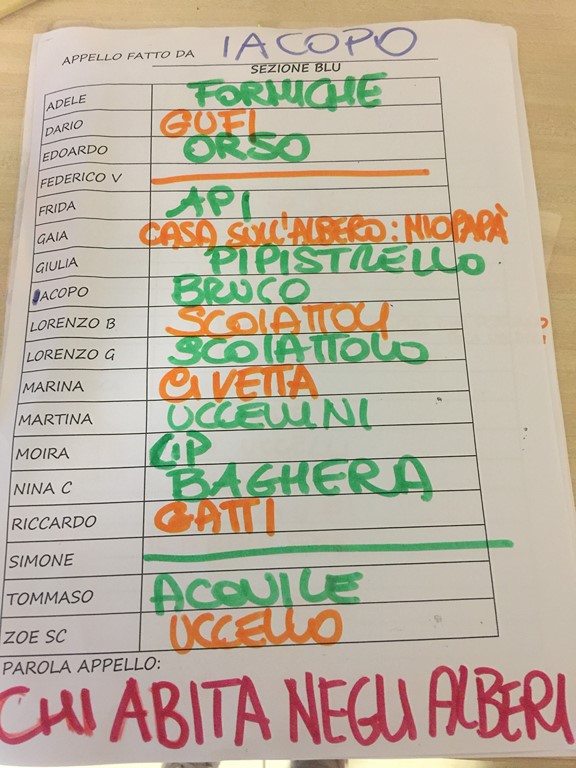 APPELLO FATTO DA IACOPO
SEZIONE BLU
ADELE FORMICHE
DARIO GUFI
EDOARDO ORSO
FEDERICO V
FRIDA API
GAIA CASA SULL'ALBERO: MIO PAPÀ
GIULIA PIPISTRELLO
IACOPO BRUCO
LORENZO B SCOIATTOLI
LORENZO G SCOIATTOLO
MARINA CIVETTA
MARTINA UCCELLINI
MOIRA CIP
NINA C BAGHERA
RICCARDO GATTI
SIMONE
TOMMASO ACQUILE
ZOE SC UCCELLO
PAROLA APPELLO:
CHI ABITA NEGLI ALBERI